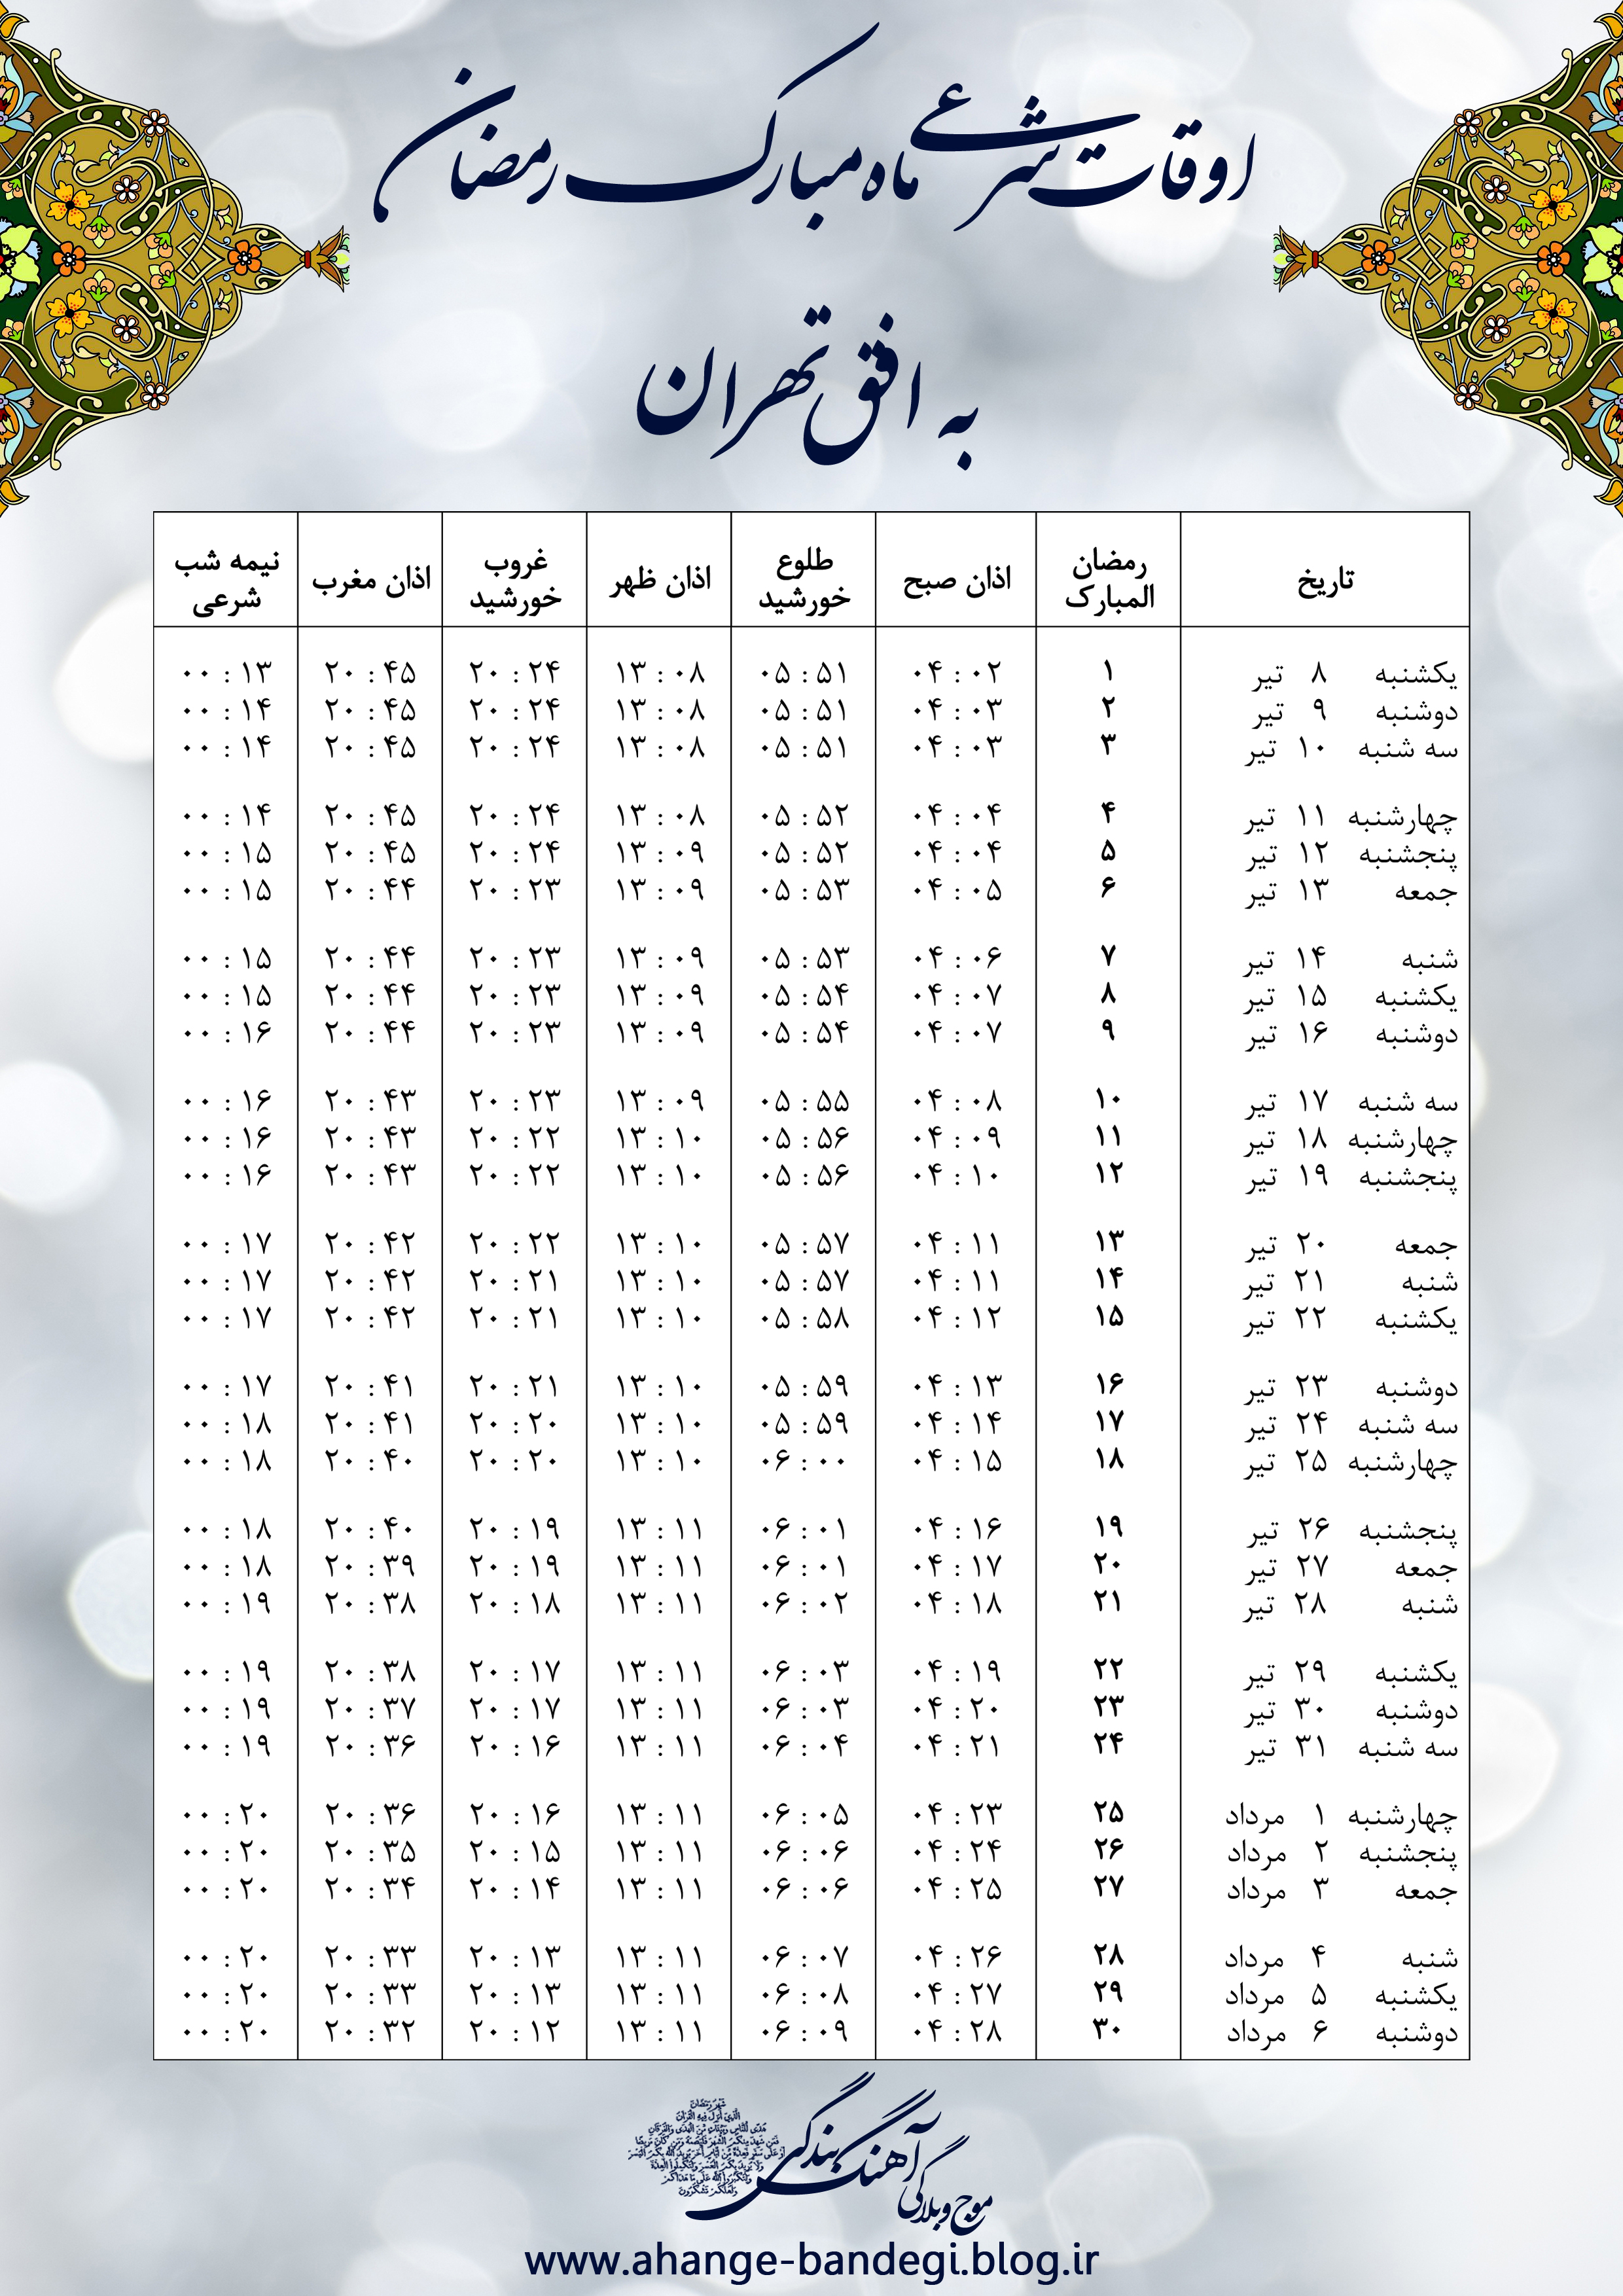 اوقات شرعی ماه مبارک رمضان
به افق تهران
تاریخ رمضان المبارک اذان صبح طلوع خورشید اذان ظهر غروب خورشید اذان مغرب نیمه شب شرعی
یکشنبه ۸ تیر ۱ ۰۴:۰۲ ۰۵:۵۱ ۱۳:۰۸ ۲۰:۲۴ ۲۰:۴۵ ۰۰:۱۳
دوشنبه ۹ تیر ۲ ۰۴:۰۳ ۰۵:۵۱ ۱۳:۰۸ ۲۰:۲۴ ۲۰:۴۵ ۰۰:۱۴
سه شنبه ۱۰ تیر ۳ ۰۴:۰۳ ۰۵:۵۱ ۱۳:۰۸ ۲۰:۲۴ ۲۰:۴۵ ۰۰:۱۴
چهارشنبه ۱۱ تیر ۴ ۰۴:۰۴ ۰۵:۵۲ ۱۳:۰۸ ۲۰:۲۴ ۲۰:۴۵ ۰۰:۱۴
پنجشنبه ۱۲ تیر ۵ ۰۴:۰۴ ۰۵:۵۲ ۱۳:۰۹ ۲۰:۲۴ ۲۰:۴۵ ۰۰:۱۵
جمعه ۱۳ تیر ۶ ۰۴:۰۵ ۰۵:۵۳ ۱۳:۰۹ ۲۰:۲۳ ۲۰:۴۴ ۰۰:۱۵
شنبه ۱۴ تیر ۷ ۰۴:۰۶ ۰۵:۵۳ ۱۳:۰۹ ۲۰:۲۳ ۲۰:۴۴ ۰۰:۱۵
یکشنبه ۱۵ تیر ۸ ۰۴:۰۷ ۰۵:۵۴ ۱۳:۰۹ ۲۰:۲۳ ۲۰:۴۴ ۰۰:۱۵
دوشنبه ۱۶ تیر ۹ ۰۴:۰۷ ۰۵:۵۴ ۱۳:۰۹ ۲۰:۲۳ ۲۰:۴۴ ۰۰:۱۶
سه شنبه ۱۷ تیر ۱۰ ۰۴:۰۸ ۰۵:۵۵ ۱۳:۰۹ ۲۰:۲۳ ۲۰:۴۳ ۰۰:۱۶
چهارشنبه ۱۸ تیر ۱۱ ۰۴:۰۹ ۰۵:۵۶ ۱۳:۱۰ ۲۰:۲۲ ۲۰:۴۳ ۰۰:۱۶
پنجشنبه ۱۹ تیر ۱۲ ۰۴:۱۰ ۰۵:۵۶ ۱۳:۱۰ ۲۰:۲۲ ۲۰:۴۳ ۰۰:۱۶
جمعه ۲۰ تیر ۱۳ ۰۴:۱۱ ۰۵:۵۷ ۱۳:۱۰ ۲۰:۲۲ ۲۰:۴۲ ۰۰:۱۷
شنبه ۲۱ تیر ۱۴ ۰۴:۱۱ ۰۵:۵۷ ۱۳:۱۰ ۲۰:۲۱ ۲۰:۴۲ ۰۰:۱۷
یکشنبه ۲۲ تیر ۱۵ ۰۴:۱۲ ۰۵:۵۸ ۱۳:۱۰ ۲۰:۲۱ ۲۰:۴۲ ۰۰:۱۷
دوشنبه ۲۳ تیر ۱۶ ۰۴:۱۳ ۰۵:۵۹ ۱۳:۱۰ ۲۰:۲۱ ۲۰:۴۱ ۰۰:۱۷
سه شنبه ۲۴ تیر ۱۷ ۰۴:۱۴ ۰۵:۵۹ ۱۳:۱۰ ۲۰:۲۰ ۲۰:۴۱ ۰۰:۱۸
چهارشنبه ۲۵ تیر ۱۸ ۰۴:۱۵ ۰۶:۰۰ ۱۳:۱۰ ۲۰:۲۰ ۲۰:۴۰ ۰۰:۱۸
پنجشنبه ۲۶ تیر ۱۹ ۰۴:۱۶ ۰۶:۰۱ ۱۳:۱۱ ۲۰:۱۹ ۲۰:۴۰ ۰۰:۱۸
جمعه ۲۷ تیر ۲۰ ۰۴:۱۷ ۰۶:۰۱ ۱۳:۱۱ ۲۰:۱۹ ۲۰:۳۹ ۰۰:۱۸
شنبه ۲۸ تیر ۲۱ ۰۴:۱۸ ۰۶:۰۲ ۱۳:۱۱ ۲۰:۱۸ ۲۰:۳۸ ۰۰:۱۹
یکشنبه ۲۹ تیر ۲۲ ۰۴:۱۹ ۰۶:۰۳ ۱۳:۱۱ ۲۰:۱۷ ۲۰:۳۸ ۰۰:۱۹
دوشنبه ۳۰ تیر ۲۳ ۰۴:۲۰ ۰۶:۰۳ ۱۳:۱۱ ۲۰:۱۷ ۲۰:۳۷ ۰۰:۱۹
سه شنبه ۳۱ تیر ۲۴ ۰۴:۲۱ ۰۶:۰۴ ۱۳:۱۱ ۲۰:۱۶ ۲۰:۳۶ ۰۰:۱۹
چهارشنبه ۱ مرداد ۲۵ ۰۴:۲۳ ۰۶:۰۵ ۱۳:۱۱ ۲۰:۱۶ ۲۰:۳۶ ۰۰:۲۰
پنجشنبه ۲ مرداد ۲۶ ۰۴:۲۴ ۰۶:۰۶ ۱۳:۱۱ ۲۰:۱۵ ۲۰:۳۵ ۰۰:۲۰
جمعه ۳ مرداد ۲۷ ۰۴:۲۵ ۰۶:۰۶ ۱۳:۱۱ ۲۰:۱۴ ۲۰:۳۴ ۰۰:۲۰
شنبه ۴ مرداد ۲۸ ۰۴:۲۶ ۰۶:۰۷ ۱۳:۱۱ ۲۰:۱۳ ۲۰:۳۳ ۰۰:۲۰
یکشنبه ۵ مرداد ۲۹ ۰۴:۲۷ ۰۶:۰۸ ۱۳:۱۱ ۲۰:۱۳ ۲۰:۳۳ ۰۰:۲۰
دوشنبه ۶ مرداد ۳۰ ۰۴:۲۸ ۰۶:۰۹ ۱۳:۱۱ ۲۰:۱۲ ۲۰:۳۲ ۰۰:۲۰
موج وبلاگی آهنگ بندگی
www.ahange-bandegi.blog.ir